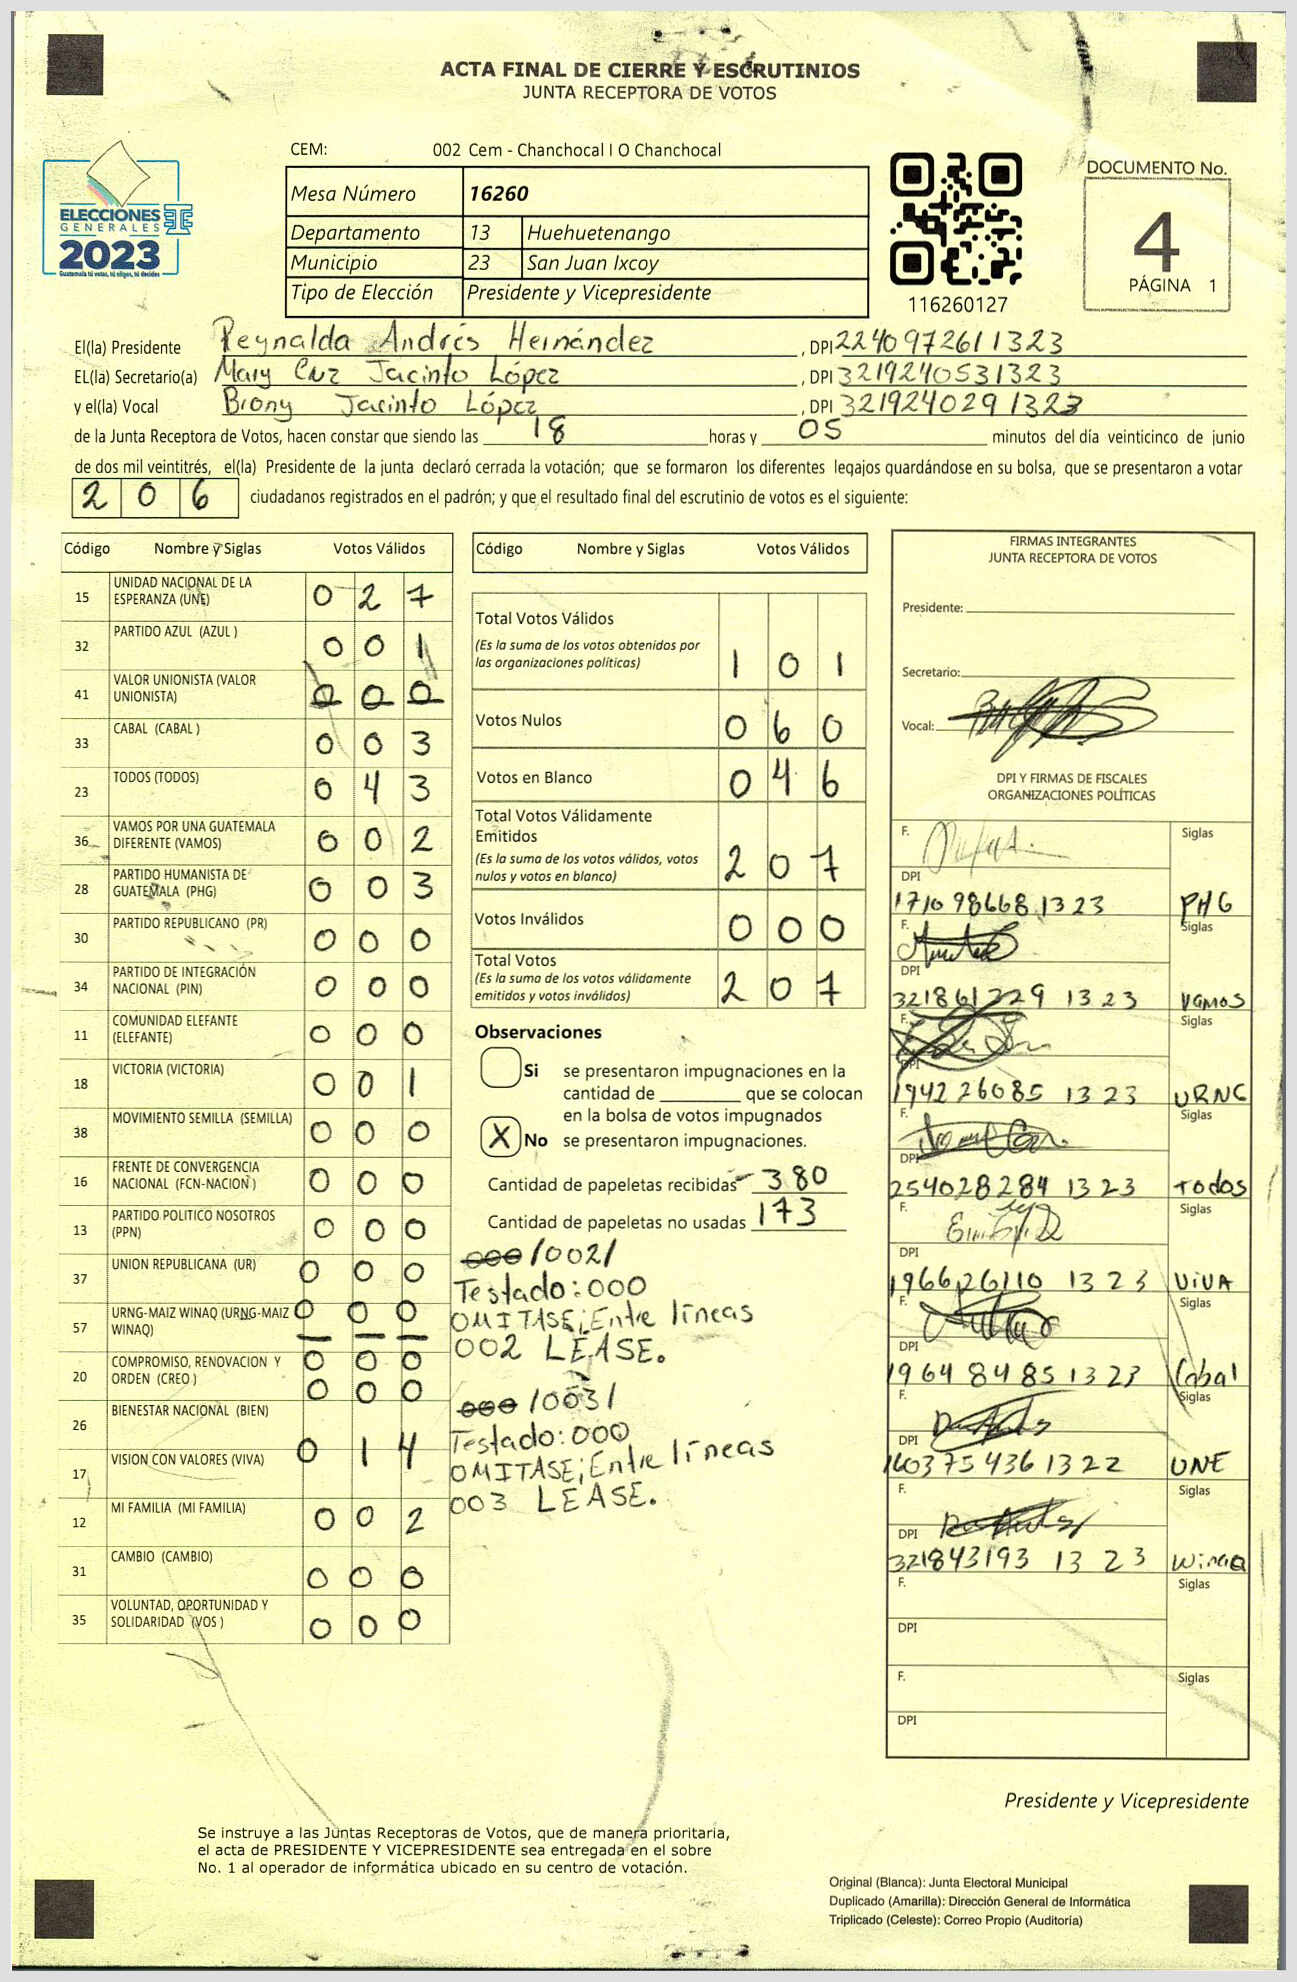 ACTA FINAL DE CIERRE Y ESCRUTINIOS
JUNTA RECEPTORA DE VOTOS
ELECCIONES
GENERALES
2023
Guatemala tú votas, tú eliges, tú decides
CEM: 002 Cem - Chanchocal I O Chanchocal
Mesa Número 16260
Departamento 13 Huehuetenango
Municipio 23 San Juan Ixcoy
Tipo de Elección Presidente y Vicepresidente
116260127
DOCUMENTO No.
4
PÁGINA 1
El(la) Presidente Reynalda Andrés Hernández, DPI 2240972611323
EL(la) Secretario(a) Mary Cruz Jacinto López, DPI 3219240531323
y el(la) Vocal Brony Jacinto López, DPI 3219240291323
de la Junta Receptora de Votos, hacen constar que siendo las 18 horas y 05 minutos del día veinticinco de junio
de dos mil veintitrés, el(la) Presidente de la junta declaró cerrada la votación; que se formaron los diferentes legajos guardándose en su bolsa, que se presentaron a votar
206 ciudadanos registrados en el padrón; y que el resultado final del escrutinio de votos es el siguiente:
Código Nombre y Siglas Votos Válidos
15 UNIDAD NACIONAL DE LA ESPERANZA (UNE) 0 2 7
32 PARTIDO AZUL (AZUL ) 0 0 1
41 VALOR UNIONISTA (VALOR UNIONISTA) 0 0 0
33 CABAL (CABAL ) 0 0 3
23 TODOS (TODOS) 0 4 3
36 VAMOS POR UNA GUATEMALA DIFERENTE (VAMOS) 0 0 2
28 PARTIDO HUMANISTA DE GUATEMALA (PHG) 0 0 3
30 PARTIDO REPUBLICANO (PR) 0 0 0
34 PARTIDO DE INTEGRACIÓN NACIONAL (PIN) 0 0 0
11 COMUNIDAD ELEFANTE (ELEFANTE) 0 0 0
18 VICTORIA (VICTORIA) 0 0 1
38 MOVIMIENTO SEMILLA (SEMILLA) 0 0 0
16 FRENTE DE CONVERGENCIA NACIONAL (FCN-NACION ) 0 0 0
13 PARTIDO POLITICO NOSOTROS (PPN) 0 0 0
37 UNION REPUBLICANA (UR) 0 0 0
57 URNG-MAIZ WINAQ (URNG-MAIZ WINAQ) 0 0 0
20 COMPROMISO, RENOVACION Y ORDEN (CREO ) 0 0 0
26 BIENESTAR NACIONAL (BIEN) 0 0 0
17 VISION CON VALORES (VIVA) 0 1 4
12 MI FAMILIA (MI FAMILIA) 0 0 2
31 CAMBIO (CAMBIO) 0 0 0
35 VOLUNTAD, OPORTUNIDAD Y SOLIDARIDAD (VOS ) 0 0 0
Código Nombre y Siglas Votos Válidos
Total Votos Válidos
(Es la suma de los votos obtenidos por
las organizaciones políticas) 1 0 1
Votos Nulos 0 6 0
Votos en Blanco 0 4 6
Total Votos Válidamente
Emitidos
(Es la suma de los votos válidos, votos
nulos y votos en blanco) 2 0 7
Votos Inválidos 0 0 0
Total Votos
(Es la suma de los votos válidamente
emitidos y votos inválidos) 2 0 7
Observaciones
Si se presentaron impugnaciones en la
cantidad de ________ que se colocan
en la bolsa de votos impugnados
X No se presentaron impugnaciones.
Cantidad de papeletas recibidas 380
Cantidad de papeletas no usadas 173
000 /002/
Testado: 000
OMITASE; Entre líneas
002 LÉASE.
000 /003/
Testado: 000
OMITASE; Entre líneas
003 LÉASE.
FIRMAS INTEGRANTES
JUNTA RECEPTORA DE VOTOS
Presidente:
Secretario:
Vocal:
DPI Y FIRMAS DE FISCALES
ORGANIZACIONES POLÍTICAS
F. Siglas
DPI
171098668 1323 PHG
F. Siglas
DPI
321861229 1323 Vamos
F. Siglas
DPI
194226085 1323 URNG
F. Siglas
DPI
254028284 1323 Todos
F. Siglas
DPI
196626110 1323 VIVA
F. Siglas
DPI
1964 8485 1323 Cabal
F. Siglas
DPI
160375436 1322 UNE
F. Siglas
DPI
321843193 1323 Winaq
F. Siglas
DPI
F. Siglas
DPI
Presidente y Vicepresidente
Se instruye a las Juntas Receptoras de Votos, que de manera prioritaria,
el acta de PRESIDENTE Y VICEPRESIDENTE sea entregada en el sobre
No. 1 al operador de informática ubicado en su centro de votación.
Original (Blanca): Junta Electoral Municipal
Duplicado (Amarilla): Dirección General de Informática
Triplicado (Celeste): Correo Propio (Auditoría)